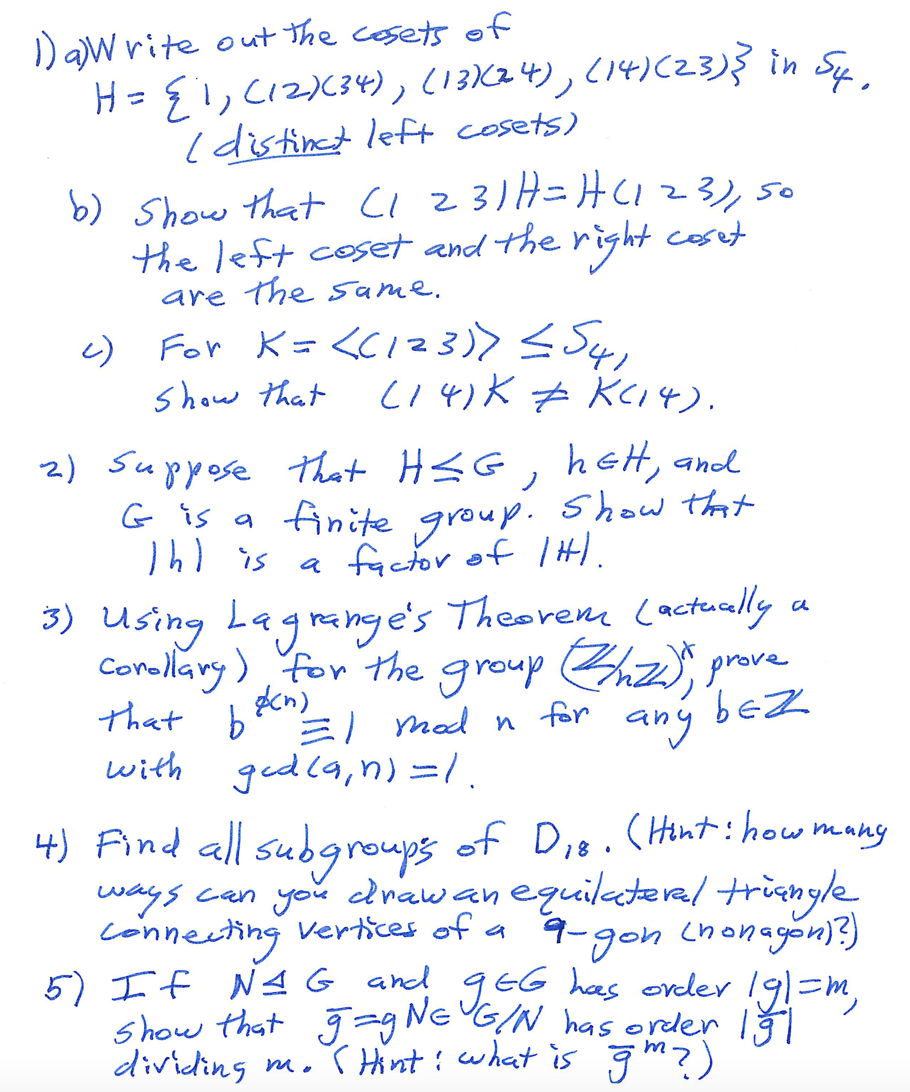 1) a) Write out the cosets of
H = { 1, (12)(34), (13)(24), (14)(23)} in S₄.
(distinct left cosets)
b) Show that (1 2 3)H = H(1 2 3), so
the left coset and the right coset
are the same.
c) For K = <(123)> ≤ S₄,
show that (1 4)K ≠ K(14).
2) Suppose that H ≤ G, h ∈ H, and
G is a finite group. Show that
|h| is a factor of |H|.
3) Using Lagrange's Theorem (actually a
corollary) for the group (ℤ/nℤ)ˣ, prove
that b^ϕ(n) ≡ 1 mod n for any b ∈ ℤ
with gcd(a,n) = 1.
4) Find all subgroups of D₁₈. (Hint: how many
ways can you draw an equilateral triangle
connecting vertices of a 9-gon (nonagon)?)
5) If N ⊴ G and g ∈ G has order |g| = m,
show that g̅ = gN ∈ G/N has order |g̅|
dividing m. (Hint: what is g̅ᵐ?)